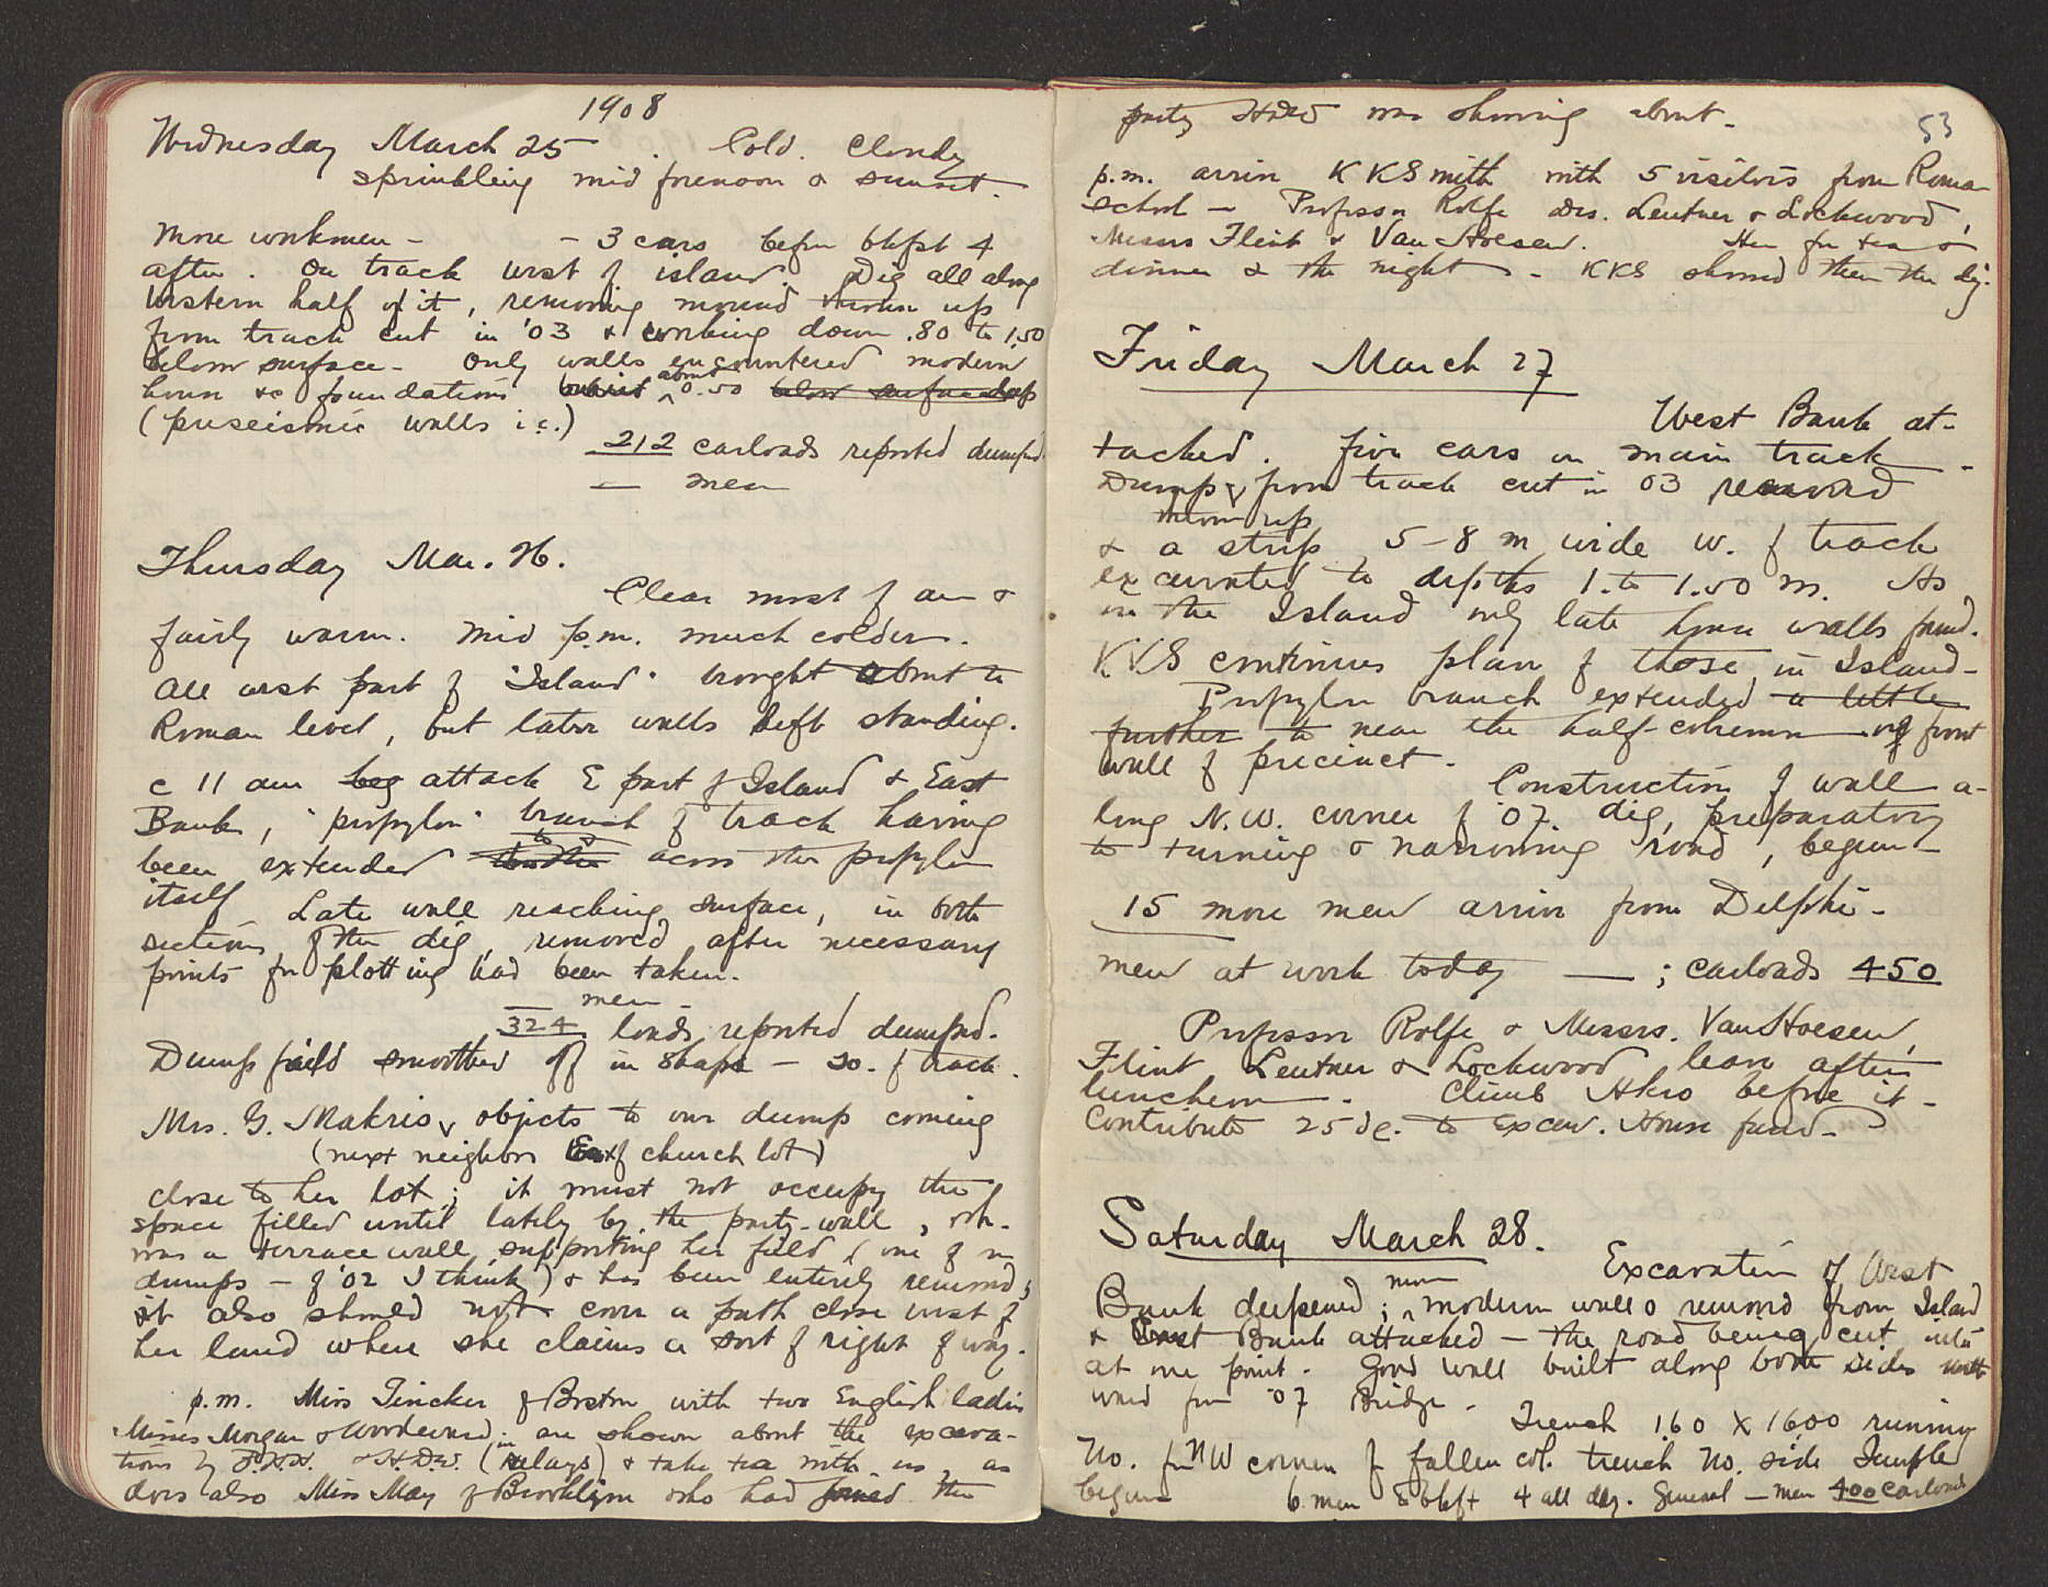 1908
Wednesday March 25. Cold. Cloudy
sprinkling mid forenoon & sunset.
More workmen - - 3 cars before bkfst 4
after. On track west of island. Dig all along
Western half of it, removing mound thrown up
from track cut in '03 & working down .80 to 1.50
below surface. Only walls encountered modern
house &c foundations about 0.50 below surface
(preseismic walls i.e.)
212 carloads reported dumped.
— men
Thursday Mar. 26.
Clear most of am &
fairly warm. Mid p.m. much colder.
All west part of "Island" brought about to
Roman level, but later walls left standing.
c 11 am beg attack E part of Island & East
Bank, "propylon" branch of track having
been extended to & across the propylon
itself. Late wall reaching surface, in both
sections of the dig, removed after necessary
points for plotting had been taken.
— men -
324 loads reported dumped.
Dump field smoothed off in shape - So. of track.
Mrs. G. Makris, objects to our dump coming
(next neighbor East of church lot)
close to her lot; it must not occupy the
space filled until lately by the party-wall, wh.
was a terrace wall supporting her field (one of our
dumps - of '02 I think) & has been entirely removed;
it also should not cover a path close west of
her land where she claims a sort of right of way.
p.m. Miss Tincker of Boston with two English ladies
Misses Morgan & Woodward, are shown about the excava-
tions by & H.D.W. (in relays) & take tea with us, as
does also Miss May of Brooklyn who had joined the
53
party HDW was showing about.
p.m. arrive KKSmith with 5 visitors from Roman
School - Professor Rolfe Drs. Leutner & Lockwood,
Messrs Flint & Van Hoesen. Here for tea &
dinner & the night. - KKS showed them the dig.
Friday March 27
West Bank at-
tacked. Five cars on main track.
Dump from track cut in 03 removed
thrown up
& a strip 5-8 m wide W. of track
excavated to depths 1. to 1.50 m. As
in the Island only late house walls found.
KKS continues plan of those in Island-
Propylon branch extended a little
further to near the half-column of front
wall of precinct.
Construction of wall a-
long N.W. corner of '07 dig, preparatory
to turning & narrowing road, begun
15 more men arrive from Delphi-
men at work today — ; carloads 450
Professor Rolfe & Messrs. Van Hoesen,
Flint Leutner & Lockwood leave after
luncheon. Climb Akro before it.
Contribute 25 dr. to Excav. House fund.
Saturday March 28.
Excavation of West
Bank deepened; more modern walls removed from Island
& East Bank attacked - the road being cut into
at one point. Good wall built along both sides north
ward from '07 Bridge. Trench 1.60 X 16.00 running
No. fr NW corner of fallen col. trench No. side Temple
begun 6 men bkft 4 all day. General — men 400 carloads